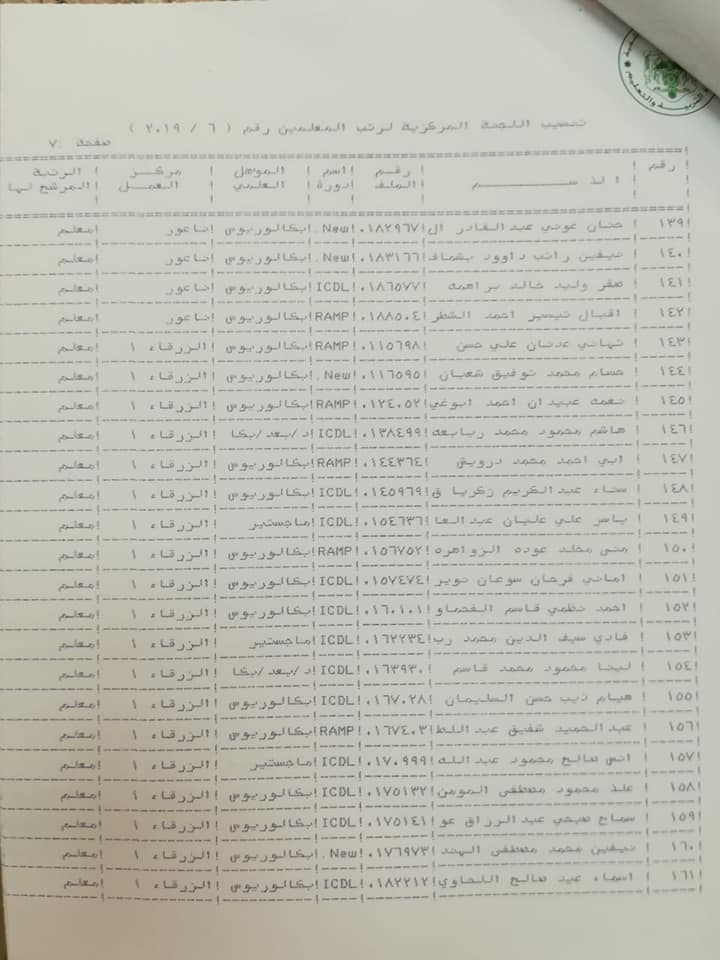 والتعليم
تنسيب اللجنة المركزية لرتب المعلمين رقم ( ٦ / ٢٠١٩ )
صفحة : ٧
رقم ! الاســـــــم ! رقم الملف ! اسم دورة ! المؤهل العلمي ! مركز العمل ! الرتبة المرشح لها
١٣٩ ! حنان عوني عبدالقادر ال!٠١٨٢٩٦٧!New .!بكالوريوس !ناعور !معلم
١٤٠ ! نيفين راتب داوود بشماف!٠١٨٣١٦٦!New .!بكالوريوس !ناعور !معلم
١٤١ ! صقر وليد خالد براهمه !٠١٨٦٥٧٧!ICDL!بكالوريوس !ناعور !معلم
١٤٢ ! اقبال تيسير احمد الشطر!٠١٨٨٥٠٤!RAMP!بكالوريوس !ناعور !معلم
١٤٣ ! تهاني عدنان علي حسن !٠١١٥٦٩٨!RAMP!بكالوريوس !الزرقاء ١ !معلم
١٤٤ ! حسام محمد توفيق شعبان !٠١١٦٥٩٥!New .!بكالوريوس !الزرقاء ١ !معلم
١٤٥ ! نعمه عبيدان احمد ابوغي!٠١٢٤٠٥٢!RAMP!بكالوريوس !الزرقاء ١ !معلم
١٤٦ ! هاشم محمود محمد ربابعه !٠١٣٨٤٩٩!ICDL!د/بعد/بكا !الزرقاء ١ !معلم
١٤٧ ! ابي احمد محمد درويش !٠١٤٤٣٦٤!RAMP!بكالوريوس !الزرقاء ١ !معلم
١٤٨ ! سناء عبدالكريم زكريا ق!٠١٤٥٩٦٩!ICDL!بكالوريوس !الزرقاء ١ !معلم
١٤٩ ! ياسر علي عليان عبدالعا!٠١٥٤٦٣٦!ICDL!ماجستير !الزرقاء ١ !معلم
١٥٠ ! منى مخلد عوده الزواهره !٠١٥٦٧٥٢!RAMP!بكالوريوس !الزرقاء ١ !معلم
١٥١ ! اماني فرحان سوعان نوير!٠١٥٧٤٧٤!ICDL!بكالوريوس !الزرقاء ١ !معلم
١٥٢ ! احمد نظمي قاسم الفحماو!٠١٦٠١٠١!ICDL!بكالوريوس !الزرقاء ١ !معلم
١٥٣ ! فادي سيف الدين محمد رب!٠١٦٢٢٣٤!ICDL!ماجستير !الزرقاء ١ !معلم
١٥٤ ! لينا محمود محمد قاسم !٠١٦٣٩٣٠!ICDL!د/بعد/بكا !الزرقاء ١ !معلم
١٥٥ ! هيام ذيب حسن السليمان !٠١٦٧٠٢٨!ICDL!بكالوريوس !الزرقاء ١ !معلم
١٥٦ ! عبدالحميد شفيق عبداللط!٠١٦٧٤٠٣!RAMP!بكالوريوس !الزرقاء ١ !معلم
١٥٧ ! انس صالح محمود عبدالله !٠١٧٠٩٩٩!ICDL!ماجستير !الزرقاء ١ !معلم
١٥٨ ! علا محمود مصطفى المومن!٠١٧٥١٣٢!ICDL!بكالوريوس !الزرقاء ١ !معلم
١٥٩ ! سماح صبحي عبدالرزاق عو!٠١٧٥١٤١!ICDL!بكالوريوس !الزرقاء ١ !معلم
١٦٠ ! نيفين محمد مصطفى الهند!٠١٧٦٩٧٣!New .!بكالوريوس !الزرقاء ١ !معلم
١٦١ ! اسماء عيد صالح اللحاوي!٠١٨٢٢١٢!ICDL!بكالوريوس !الزرقاء ١ !معلم